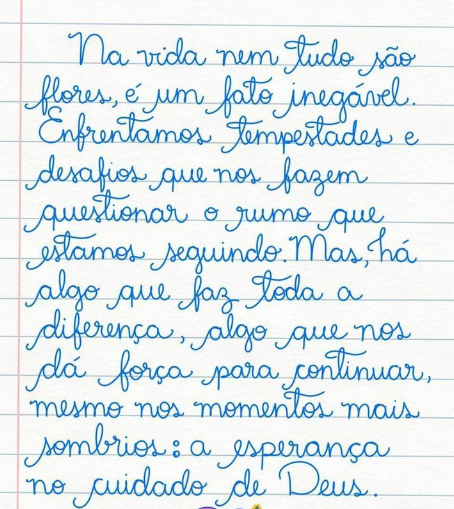 Na vida nem tudo são
flores, é um fato inegável.
Enfrentamos tempestades e
desafios que nos fazem
questionar o rumo que
estamos seguindo. Mas, há
algo que faz toda a
diferença, algo que nos
dá força para continuar,
mesmo nos momentos mais
sombrios: a esperança
no cuidado de Deus.